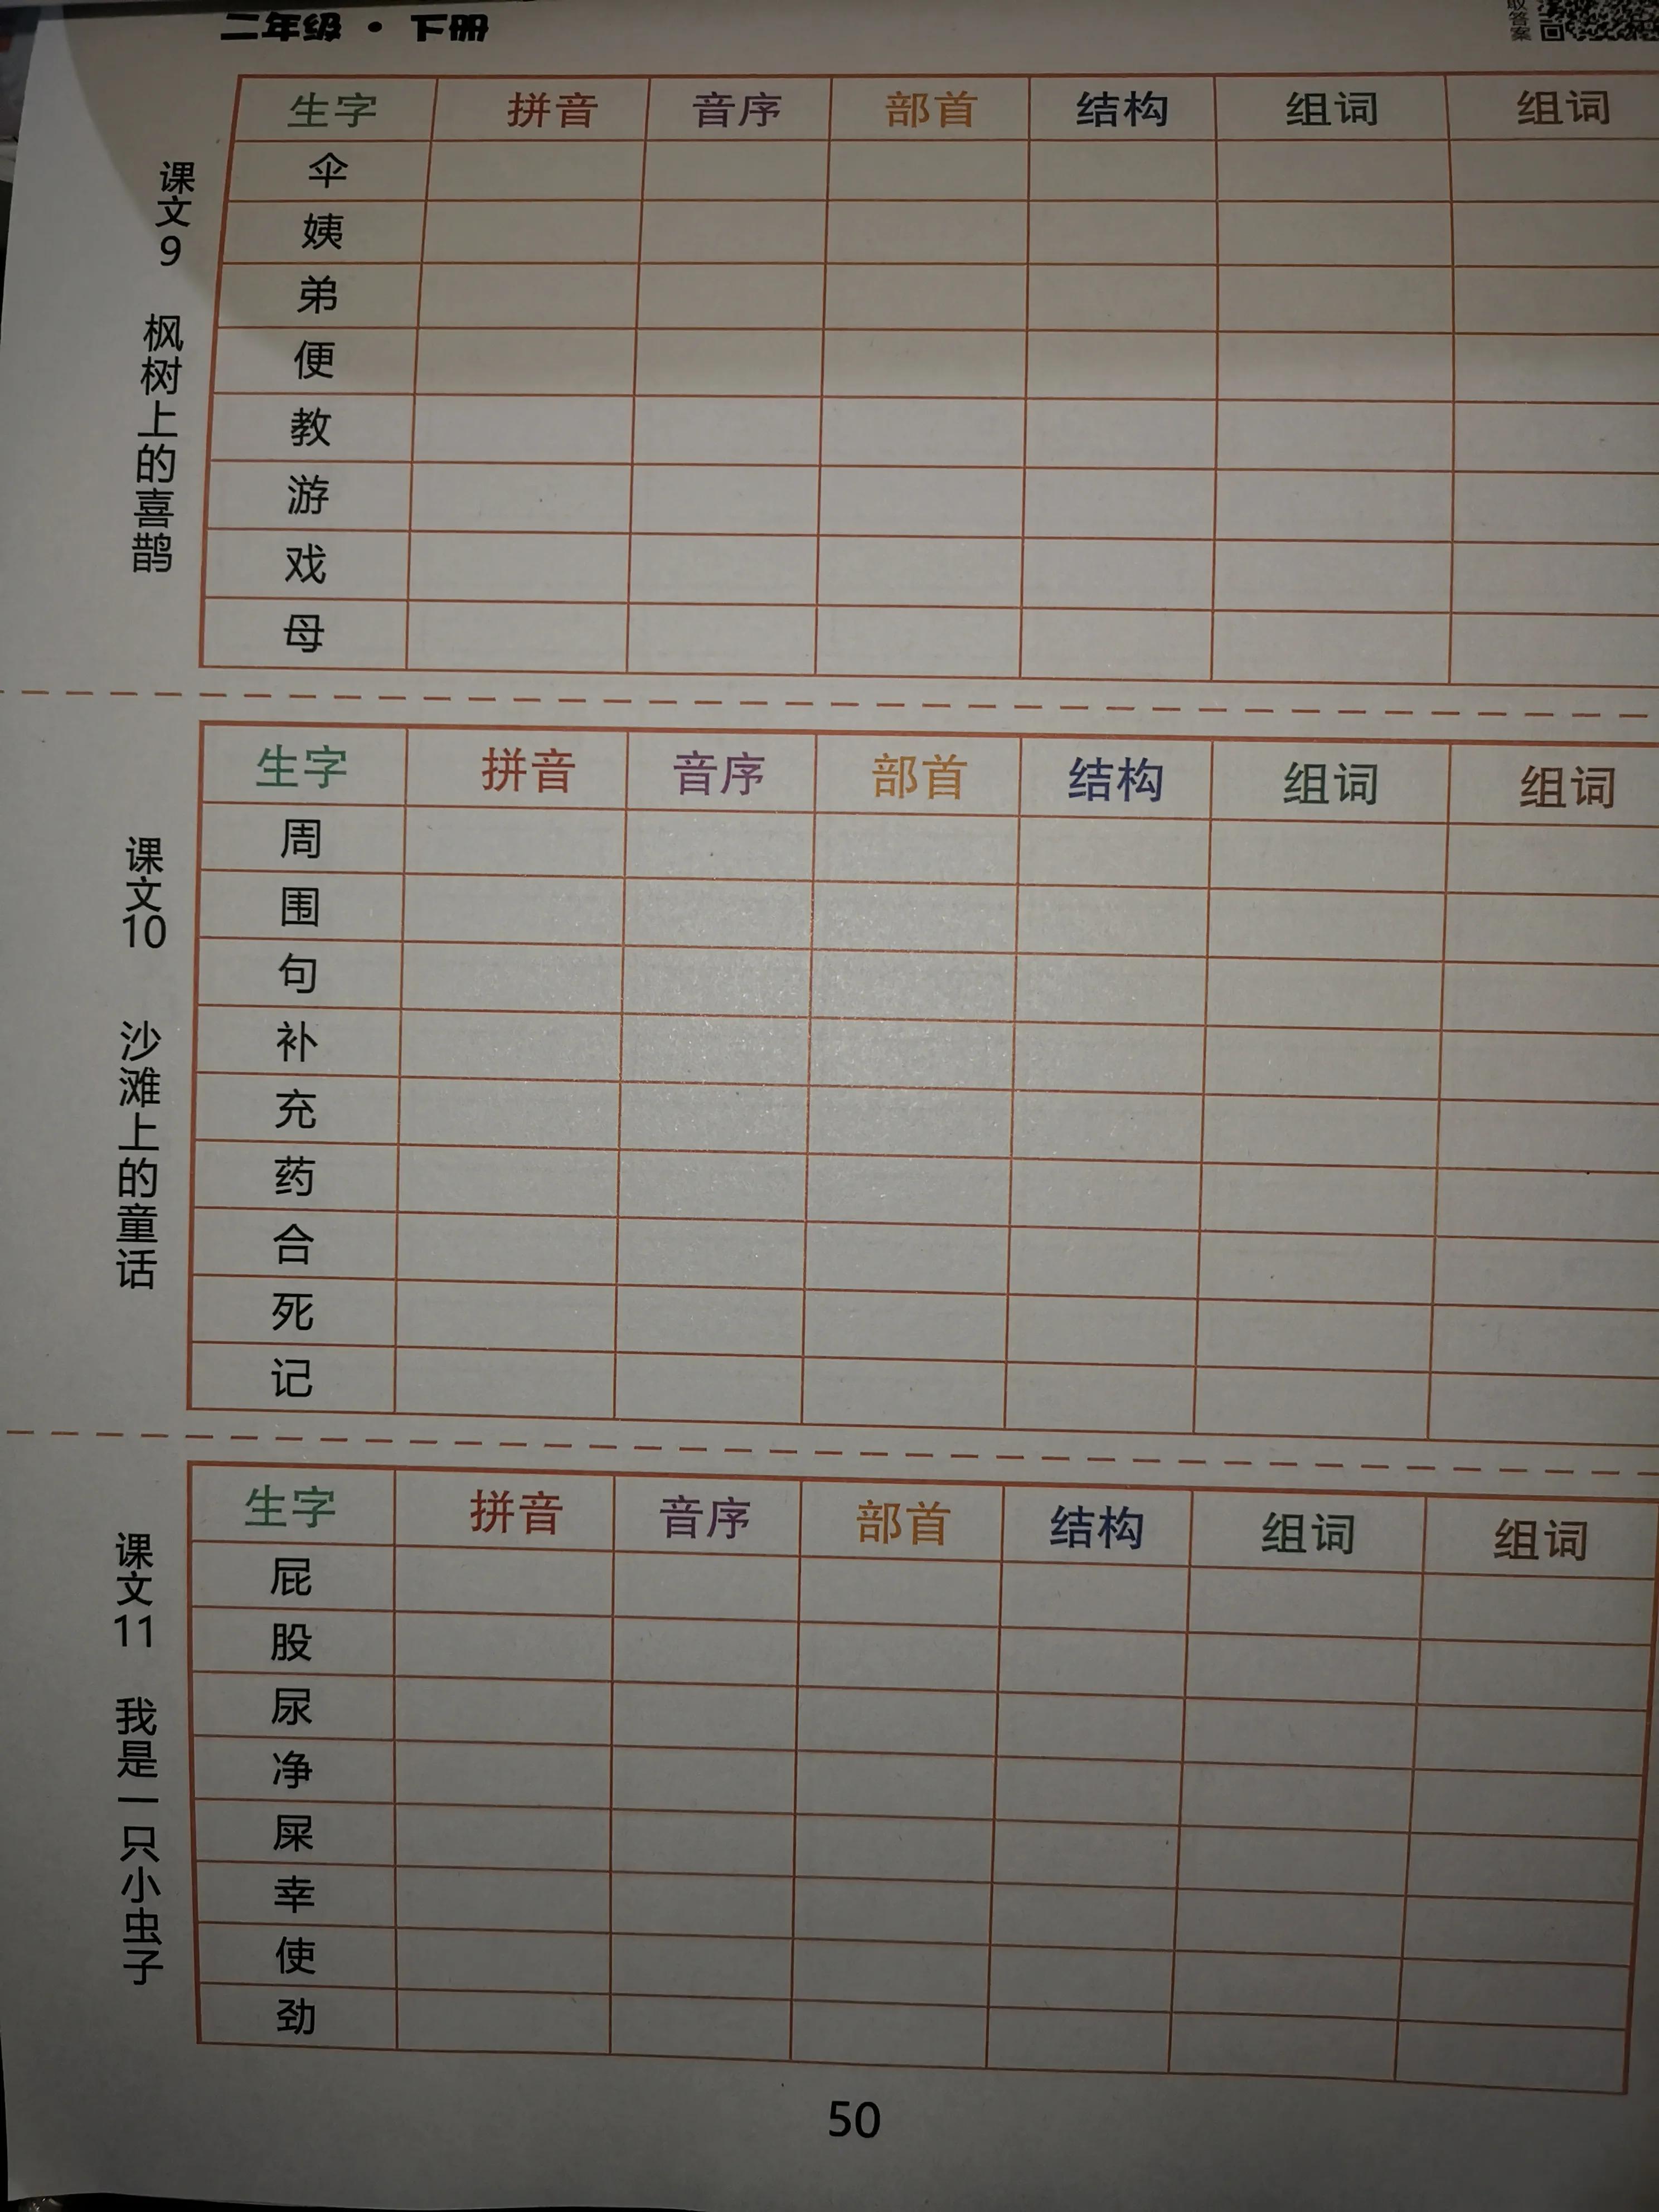 二年级·下册
取答案
课文9 枫树上的喜鹊
生字 拼音 音序 部首 结构 组词 组词
伞
姨
弟
便
教
游
戏
母
课文10 沙滩上的童话
生字 拼音 音序 部首 结构 组词 组词
周
围
句
补
充
药
合
死
记
课文11 我是一只小虫子
生字 拼音 音序 部首 结构 组词 组词
屁
股
尿
净
屎
幸
使
劲
50